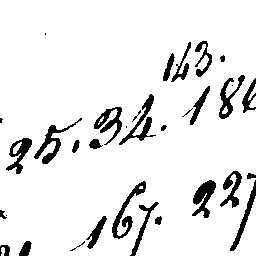 143.
25. 34. 186
167. 227